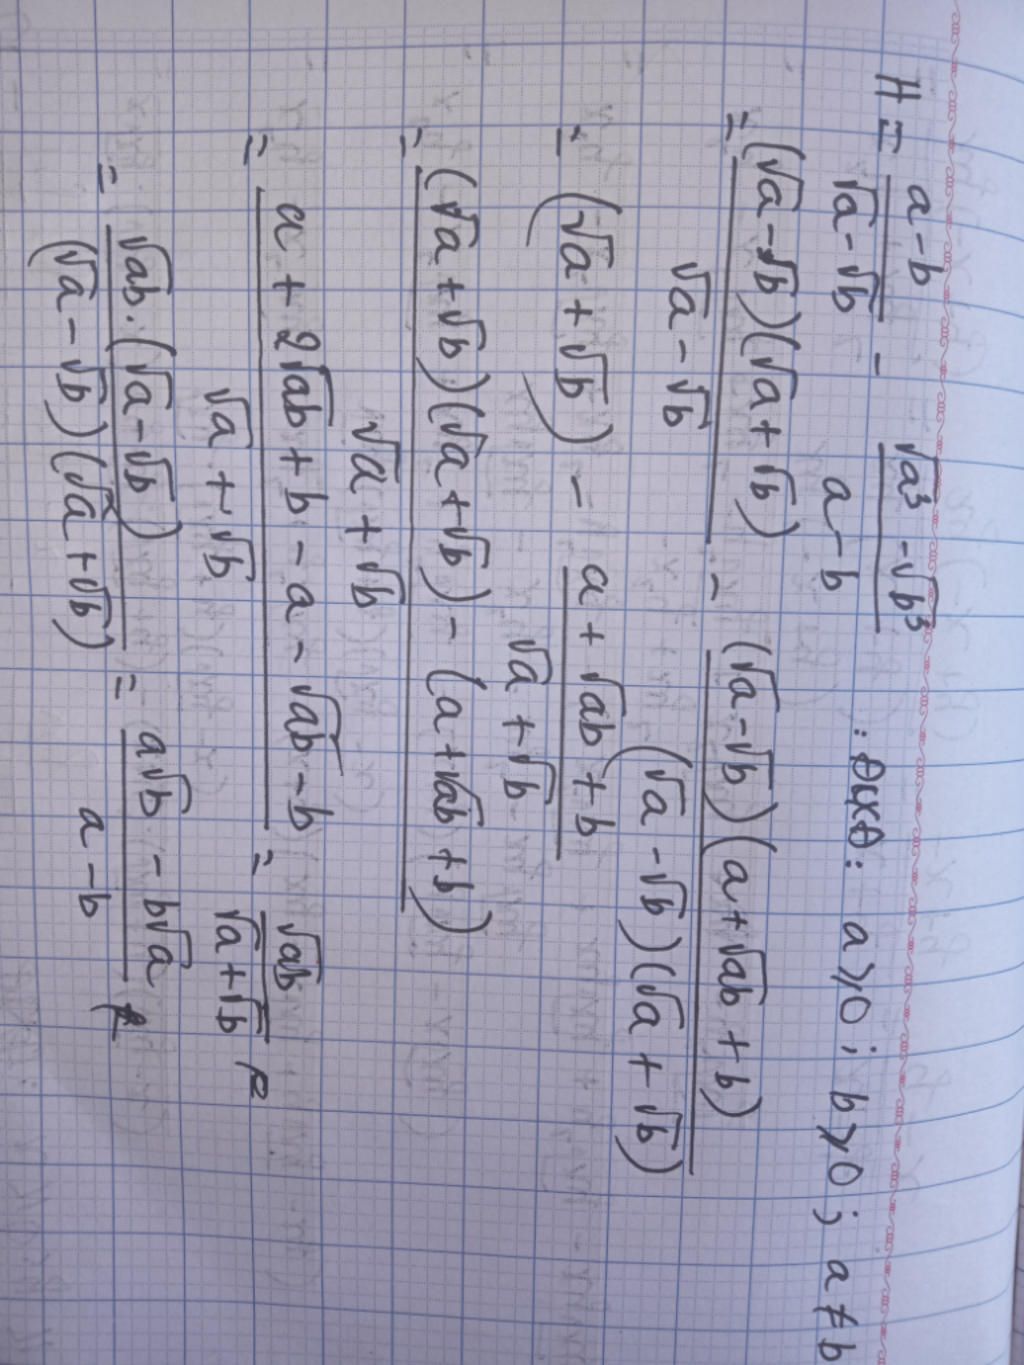 H = \frac{a-b}{\sqrt{a}-\sqrt{b}} - \frac{\sqrt{a^3}-\sqrt{b^3}}{a-b} : ĐKXĐ: a ≥ 0; b ≥ 0; a ≠ b
= \frac{(\sqrt{a}-\sqrt{b})(\sqrt{a}+\sqrt{b})}{\sqrt{a}-\sqrt{b}} - \frac{(\sqrt{a}-\sqrt{b})(a+\sqrt{ab}+b)}{(\sqrt{a}-\sqrt{b})(\sqrt{a}+\sqrt{b})}
= (\sqrt{a}+\sqrt{b}) - \frac{a+\sqrt{ab}+b}{\sqrt{a}+\sqrt{b}}
= \frac{(\sqrt{a}+\sqrt{b})(\sqrt{a}+\sqrt{b}) - (a+\sqrt{ab}+b)}{\sqrt{a}+\sqrt{b}}
= \frac{a+2\sqrt{ab}+b-a-\sqrt{ab}-b}{\sqrt{a}+\sqrt{b}} = \frac{\sqrt{ab}}{\sqrt{a}+\sqrt{b}}
= \frac{\sqrt{ab}.(\sqrt{a}-\sqrt{b})}{(\sqrt{a}-\sqrt{b})(\sqrt{a}+\sqrt{b})} = \frac{a\sqrt{b}-b\sqrt{a}}{a-b}